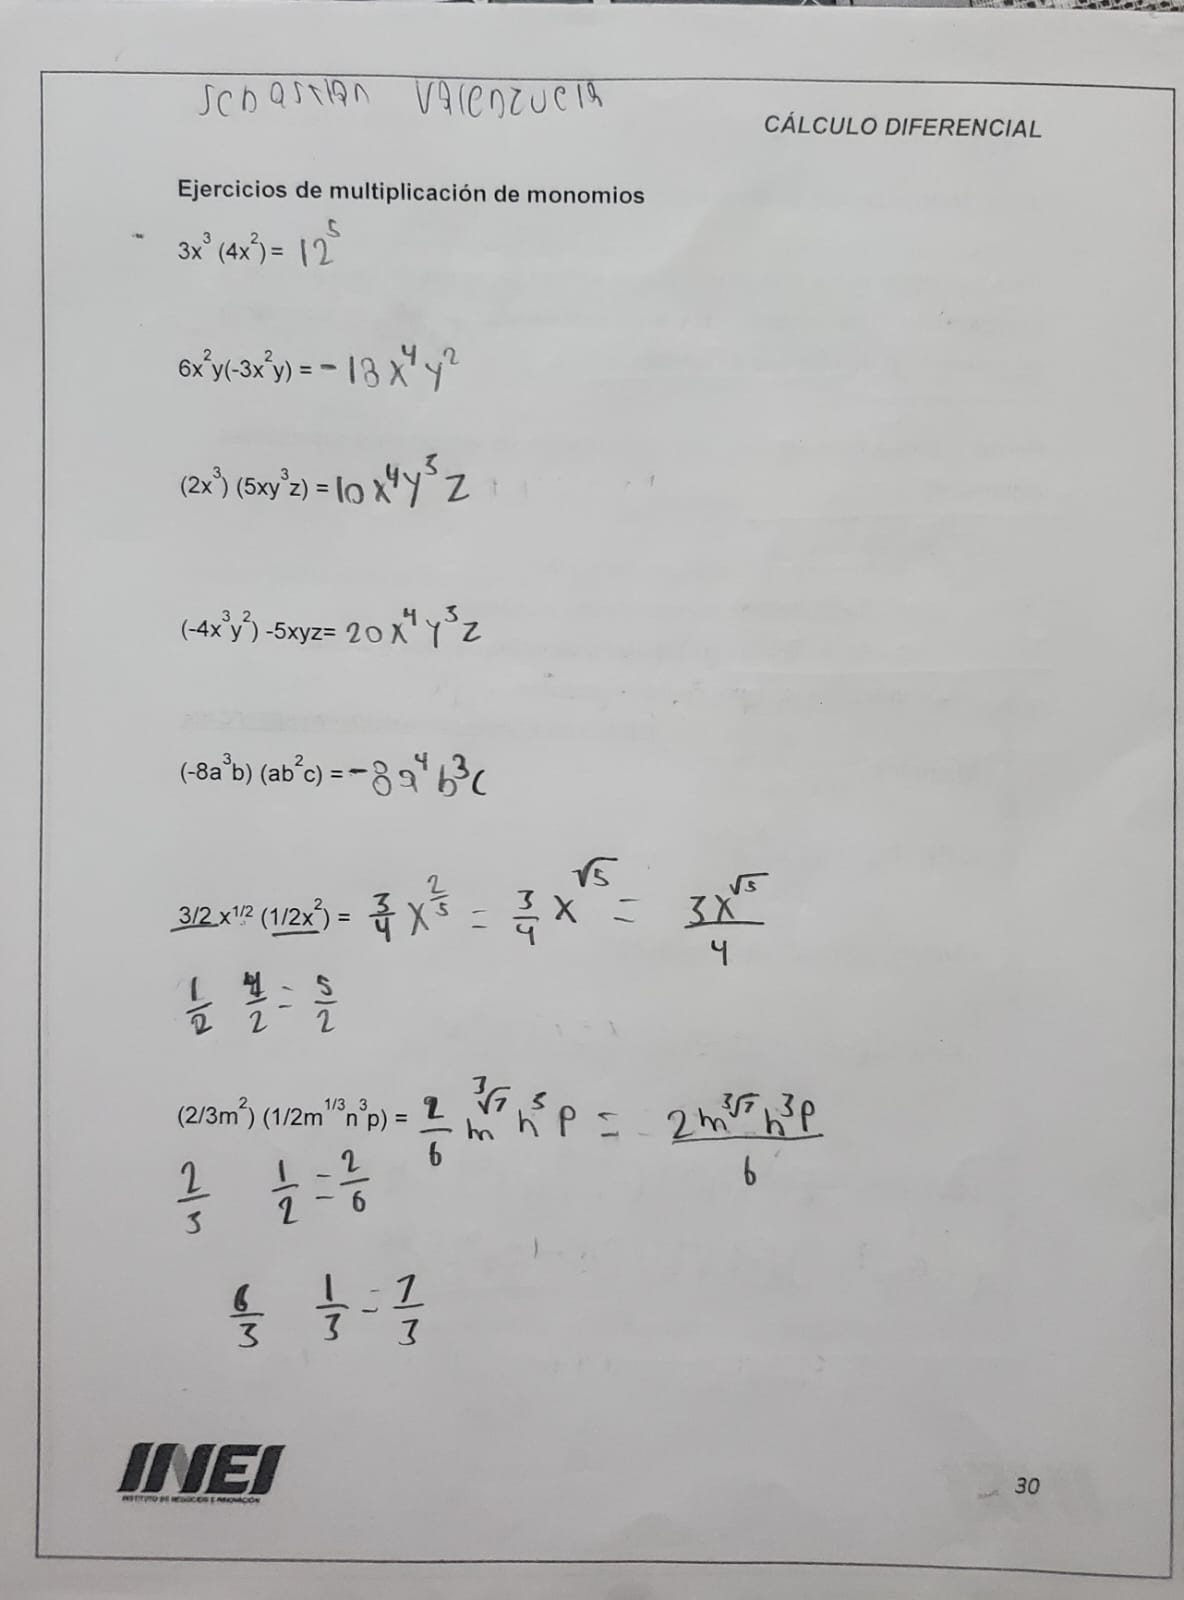 Sebastian Valenzuela
CÁLCULO DIFERENCIAL
Ejercicios de multiplicación de monomios
3x³ (4x²) = 12⁵
6x²y(-3x²y) = -18x⁴y²
(2x³) (5xy³z) = 10x⁴y³z
(-4x³y²) -5xyz= 20x⁴y³z
(-8a³b) (ab²c) = -8a⁴b³c
3/2 x^1/2 (1/2x²) = 3/4 x^2/5 = 3/4 x^√5 = 3x^√5/4
1/2 4/2 = 5/2
(2/3m²) (1/2m^1/3n³p) = 2/6 m^³√7 n³ p = 2m^³√7 n³p/6
2/3 1/2 = 2/6
6/3 1/3 = 7/3
INEI
INSTITUTO DE NEGOCIOS E INNOVACIÓN
30